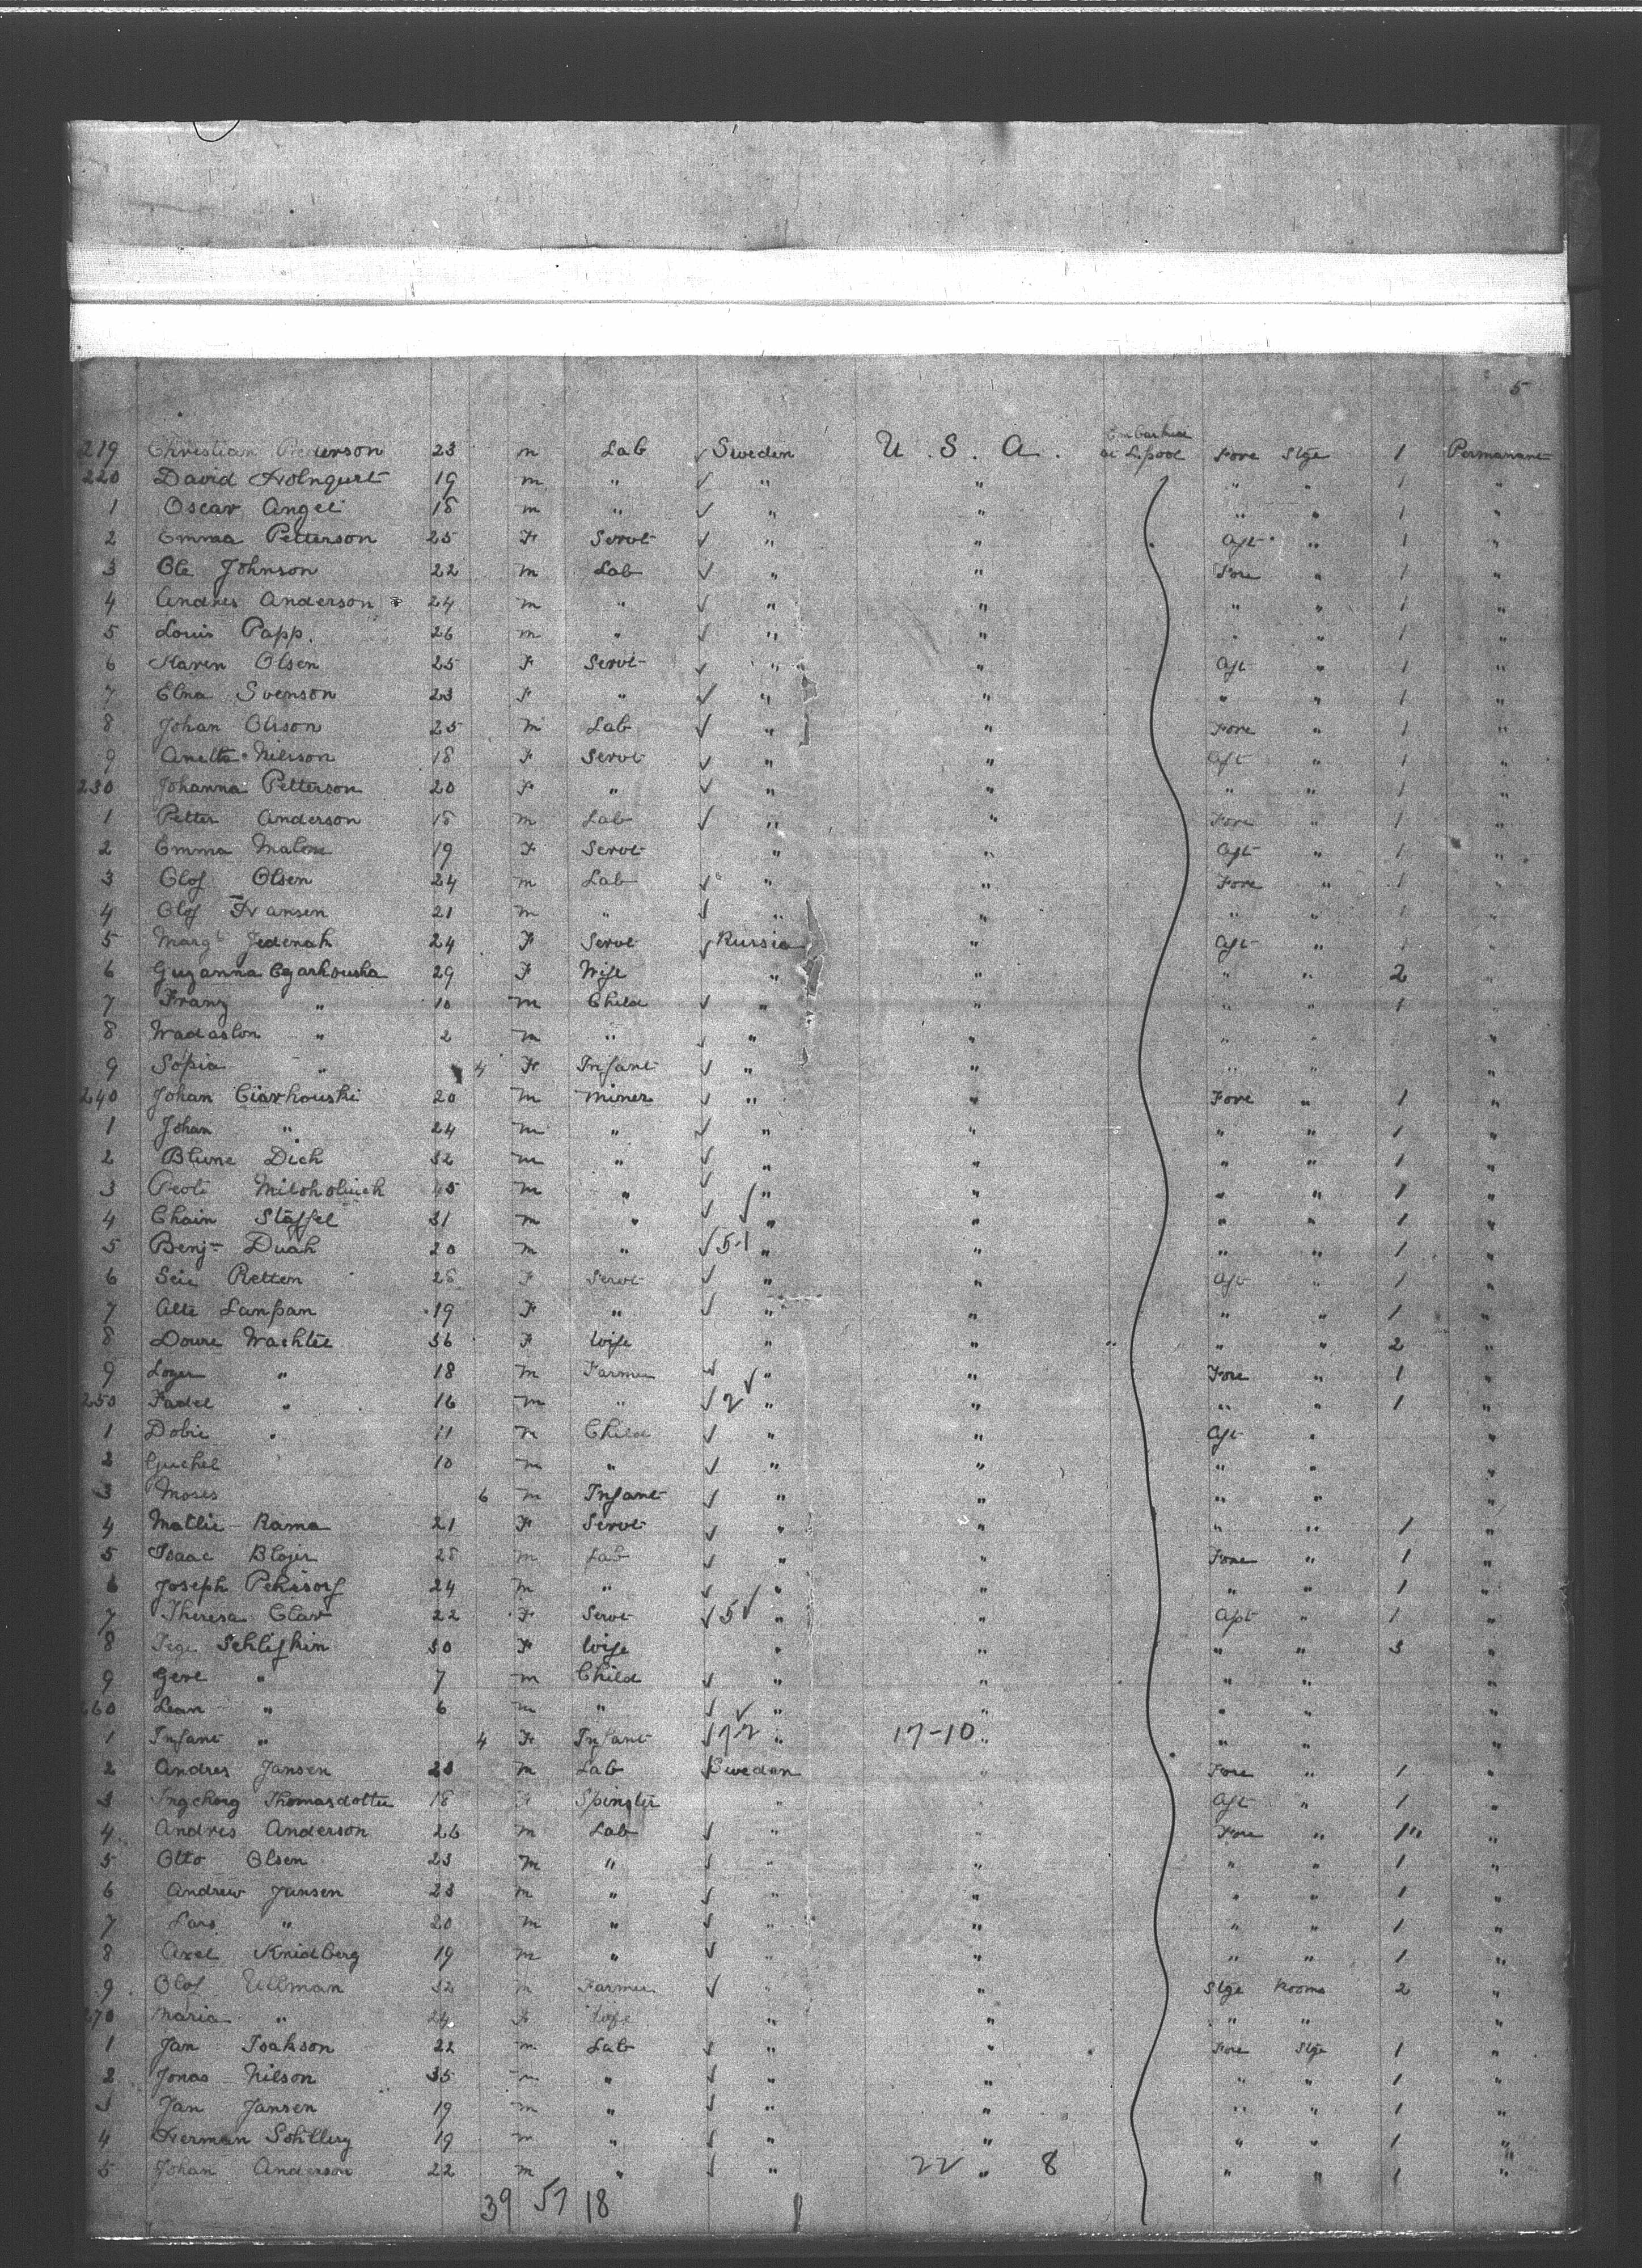 5
219 Christian Pederson 23 m Lab Sweden U. S. A. Embarked at L.pool Fore Stge 1 Permanent
220 David Holnquet 19 m " " " " " 1 "
1 Oscar Angel 18 m " " " " " 1 "
2 Emma Petterson 25 F Servt " " Aft " 1 "
3 Ole Johnson 22 m Lab " " Fore " 1 "
4 Andres Anderson 24 m " " " " " 1 "
5 Louis Papp. 26 m " " " " " 1 "
6 Karen Olsen 25 F Servt " " Aft " 1 "
7 Elna Svenson 23 F " " " " " 1 "
8 Johan Olsson 25 m Lab " " Fore " 1 "
9 Anetta Nilsson 18 F Servt " " Aft " 1 "
230 Johanna Petterson 20 F " " " " " 1 "
1 Petter Anderson 18 m Lab " " Fore " 1 "
2 Emma Malom 19 F Servt " " Aft " 1 "
3 Olof Olsen 24 m Lab " " Fore " 1 "
4 Olof Fransen 21 m " " " " " 1 "
5 Margt Jedenah 24 F Servt Russia " Aft " 1 "
6 Guzanna Cgarkouska 29 F Wife " " " " 2 "
7 Franz " 10 m Child " " " " 1 "
8 Wadaslon " 2 m " " " " " "
9 Sopia " 4 F Infant " " " " "
240 Johan Ciarkouski 20 m Miner " " Fore " 1 "
1 Johan " 24 m " " " " " 1 "
2 Blune Dich 32 m " " " " " 1 "
3 45 m " " " " " 1 "
4 Chain Stoffel 31 m " " " " " 1 "
5 Benj= Duah 20 m " 51 " " " " 1 "
6 Seie Retten 28 F Servt " " Aft " 1 "
7 Alte Lanpan 19 F " " " " " 1 "
8 Doure Wachtel 36 F Wife " " " " 2 "
9 Lozer " 18 m Farmer " " Fore " 1 "
250 Fadel " 16 m " 2 " " " " 1 "
1 Dobie " 11 m Child " " Aft " "
2 Guchel 10 m " " " " " "
3 Moses 6 m Infant " " " " "
4 Mallie Rama 21 F Servt " " " " 1 "
5 Isaac Blojer 28 m Lab " " Fore " 1 "
6 Joseph Pekisorf 24 m " " " " " 1 "
7 Theresa Clar 22 F Servt 5 " " Aft " 1 "
8 Schlifkin 30 F Wife " " " " 3 "
9 Gere " 7 m Child " " " " "
260 Lean " 6 m " " " " " "
1 Infant " 4 F Infant 72 " 17-10 " " " "
2 Andres Jansen 28 m Lab Sweden " Fore " 1 "
3 Ingeborg Thomasdotter 18 F Spinster " " Aft " 1 "
4 Andres Anderson 26 m Lab " " Fore " 1 "
5 Otto Olsen 23 m " " " " " 1 "
6 Andrew Jansen 23 m " " " " " 1 "
7 Lars " 20 m " " " " " 1 "
8 Axel Knidberg 19 m " " " " " 1 "
9 Olof Ullman 32 m Farmer " Stge Rooms 2 "
270 Maria " 24 F Wife " " " " "
1 Jan Isakson 22 m Lab " " Fore Stge 1 "
2 Jonas Nilson 35 m " " " " " 1 "
3 Jan Jansen 19 m " " " " " 1 "
4 Herman Sohlberg 19 m " " " " " 1 "
5 Johan Anderson 22 m " " 22 " 8 " " 1 "
39 57 18